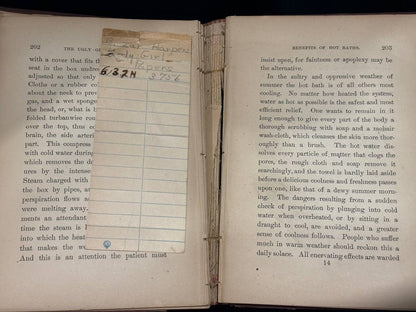 202 THE UGLY-G
with a cover that fits th
seat in the box under
adjusted so that only
Cloths or a rubber co
about the neck to prev
gas, and a wet sponge
the head, or, what is b
folded turbanwise roun
over the top, thus c
brain, the side arteri
part. This compress
with cold water during
which removes the de
ures by the intense
Steam charged with
the box by pipes, a
perspiration flows a
were melting away.
ments an attendant
time the steam is l
into which the heat
that makes the we
And this is an attention the patient must
Harper
Ugly Girl
Papers
6/324 3756
BENEFITS OF HOT BATHS. 203
insist upon, for faintness or apoplexy may be
the alternative.
In the sultry and oppressive weather of
summer the hot bath is of all others most
cooling. No matter how heated the system,
water as hot as possible is the safest and most
efficient. One wants to remain in it
long enough to give every part of the body a
thorough scrubbing with soap and a mohair
wash-cloth, which cleanses the skin more thor-
oughly than a brush. The hot water dis-
solves every particle of matter that clogs the
pores, the rough cloth and soap remove it
searchingly, and the towel is hardly laid aside
before a delicious coolness and freshness passes
upon one, like that of a dewy summer morn-
ing. The dangers resulting from a sudden
check of perspiration by plunging into cold
water when overheated, or by sitting in a
draught to cool, are avoided, and a greater
sense of coolness follows. People who suffer
much in warm weather should reckon this a
daily solace. All enervating effects are warded
14